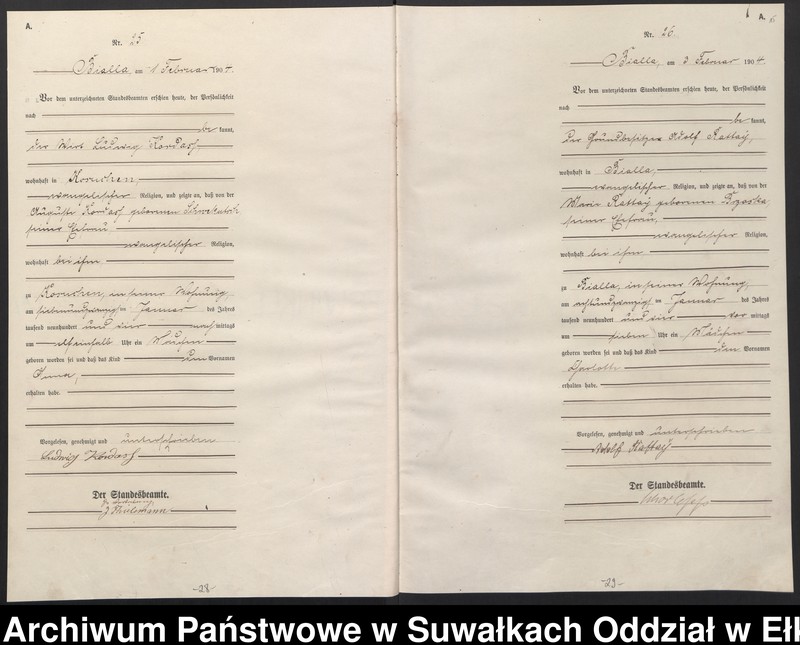 A.
Nr. 25
Bialla, am 1 Februar 1904.
Vor dem unterzeichneten Standesbeamten erschien heute, der Persönlichkeit
nach
be kannt,
der Wirt Ludwig Kordaß,
wohnhaft in
evangelischer Religion, und zeigte an, daß von der
Auguste Kordaß geborenen
seiner Ehefrau
evangelischer Religion,
wohnhaft bei ihm
zu in seiner Wohnung,
am siebenundzwanzigsten Januar des Jahres
tausend neunhundert und vier nach mittags
um elfeinhalb Uhr ein Mädchen
geboren worden sei und daß das Kind den Vornamen
erhalten habe.
Vorgelesen, genehmigt und unterschrieben
Ludwig Kordaß
Der Standesbeamte.
-28-
A. 6
Nr. 26.
Bialla, am 3 Februar 1904.
Vor dem unterzeichneten Standesbeamten erschien heute, der Persönlichkeit
nach
be kannt,
der Grundbesitzer Adolf Kattay,
wohnhaft in Bialla,
evangelischer Religion, und zeigte an, daß von der
Marie Kattay geborenen Brzoska
seiner Ehefrau,
evangelischer Religion,
wohnhaft bei ihm
zu Bialla, in seiner Wohnung,
am achtundzwanzigsten Januar des Jahres
tausend neunhundert und vier vor mittags
um sieben Uhr ein Mädchen
geboren worden sei und daß das Kind den Vornamen
Charlotte
erhalten habe.
Vorgelesen, genehmigt und unterschrieben
Adolf Kattay
Der Standesbeamte.
-29-
Archiwum Państwowe w Suwałkach Oddział w Ełk